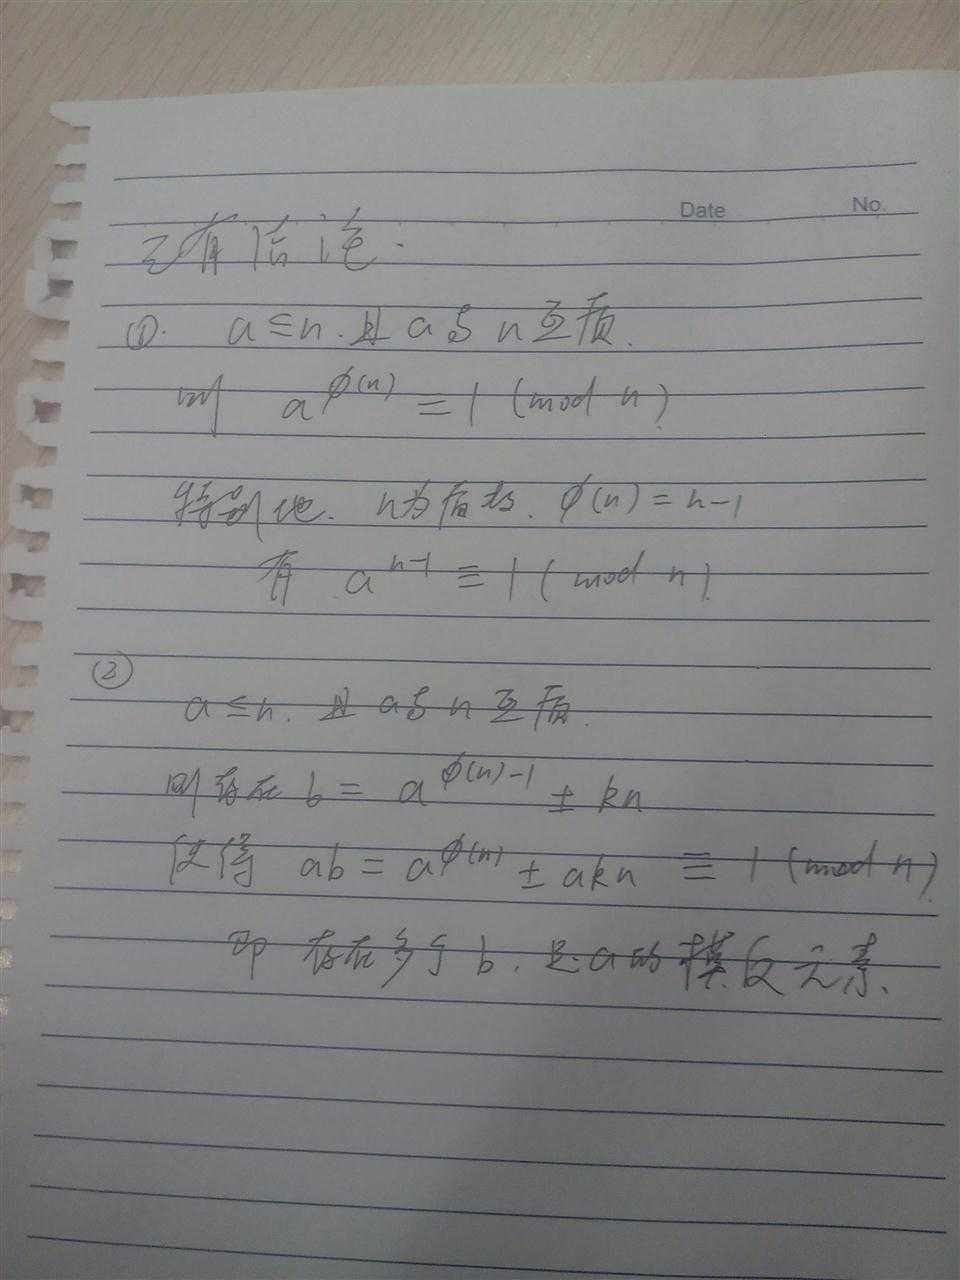 Date No.
已有结论.
①. a≤n.且a与n互质.
则 a^φ(n) ≡ 1 (mod n)
特别地. n为质数. φ(n)=n-1
有 a^n-1 ≡ 1 (mod n)
②
a≤n. 且 a与n互质.
则存在 b = a^φ(n)-1 ± kn
使得 ab = a^φ(n) ± akn ≡ 1 (mod n)
即 存在多个 b. 是a的模反元素.